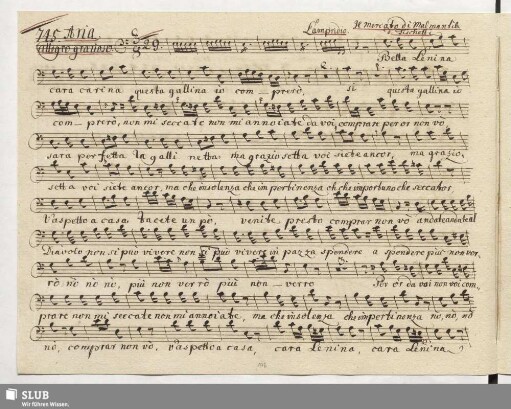 745 Aria Lampridio Il Mercato di Malmantile
Fischetti
allegro grazioso 29
Bella Lenina
cara carina questa gallina io com_prerò, si questa gallina io
com_prerò, non mi seccate non mi annoiate da voi comprare per or non vò
sarà perfetta la galli_netta ma graziosetta voi siete ancor, ma grazio,
setta voi siete ancor, ma che insolenza che impertinenza che importuno che seccator,
l'aspetto a casa tacete un pò, venite presto comprar non vò andate
Diavolo non si può vivere non si può vivere in pazza spendere a spendere più non ver,
rò no no no, più non verrò più non_verrò Per or da voi non vò com,
prare non mi seccate non mi annoiate, ma che insolenza che impertinenza no, no, no
nò, comprar non vò, l'aspetto a casa, cara Lenina, cara Lenina,
SLUB
Wir führen Wissen.